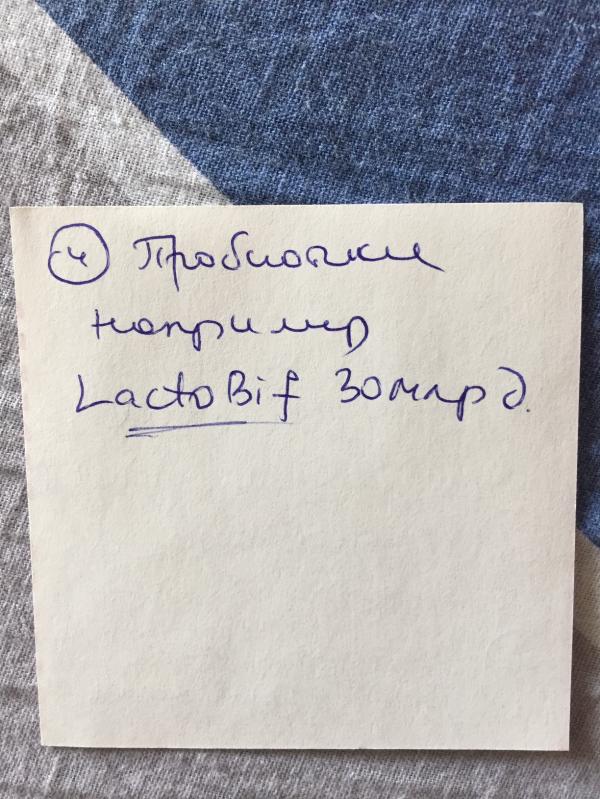 4 Пробиотики
например
LactoBif 30 млрд.